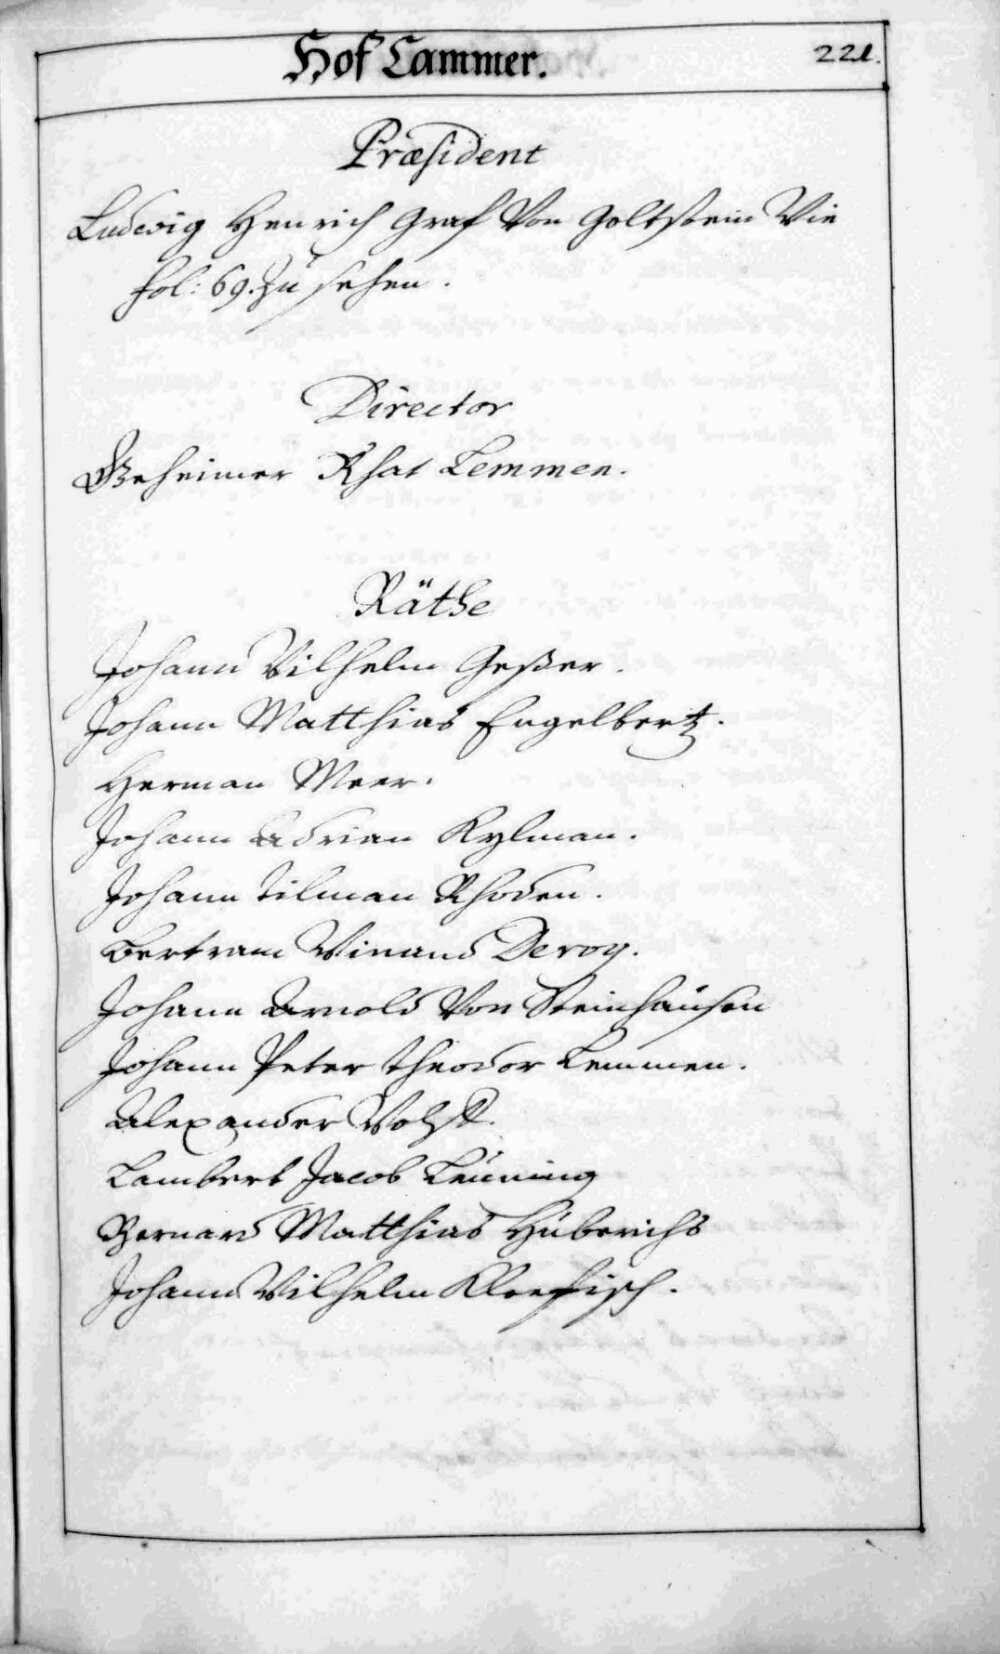 Hof Cammer.
221.
Præsident
Ludwig Henrich Graf Von Goltstein Wie
fol: 69. zu sehen.
Director
Geheimer Rhat Lemmen.
Räthe
Johann Wilhelm Geßer.
Johann Matthias Engelbertz.
Herman Meer.
Johann Adrian Kylman.
Johann Tilman Rhoden.
Bertram Winand Deroy.
Johann Arnold Von Steinhausen
Johann Peter Theodor Lemmen.
Alexander
Lambert Jacob Leuning
Bernard Matthias Huberichs
Johann Wilhelm Kloefisch.